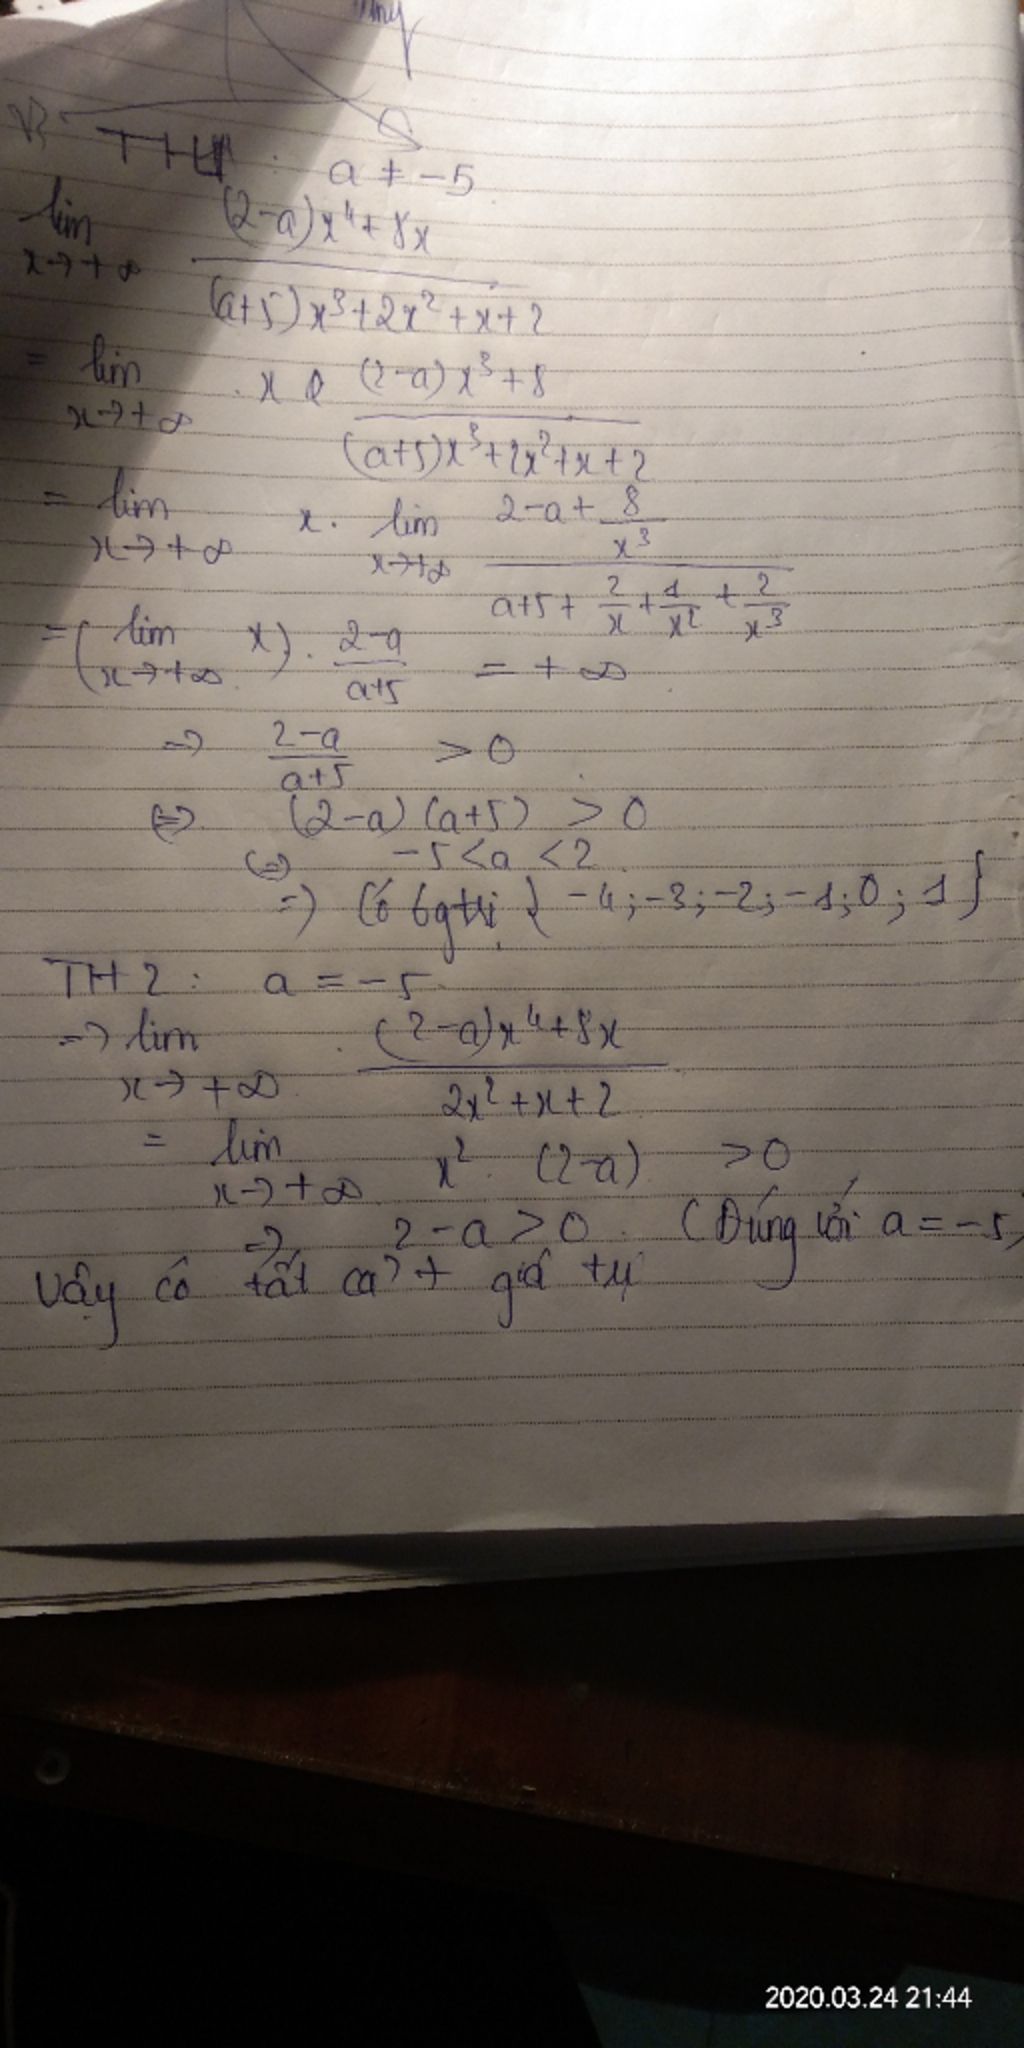 TH1 : a ≠ -5
lim x→+∞ ((2-a)x⁴ + 8x) / ((a+5)x³ + 2x² + x + 2)
= lim x→+∞ . x . ((2-a)x³ + 8) / ((a+5)x³ + 2x² + x + 2)
= lim x→+∞ x . lim x→+∞ (2-a + 8/x³) / (a+5 + 2/x + 1/x² + 2/x³)
= (lim x→+∞ x) . (2-a)/(a+5) = +∞
=> (2-a)/(a+5) > 0
<=> (2-a)(a+5) > 0
<=> -5 < a < 2
=> Có 6 gtrị { -4 ; -3 ; -2 ; -1 ; 0 ; 1 }
TH2 : a = -5
=> lim x→+∞ . ((2-a)x⁴ + 8x) / (2x² + x + 2)
= lim x→+∞ x² . (2-a) > 0
=> 2-a > 0 . (Đúng với a = -5)
Vậy có tất cả 7 giá trị
2020.03.24 21:44